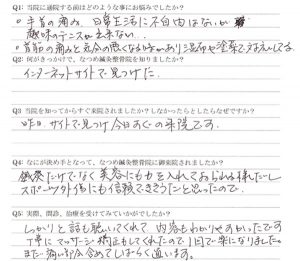 Q1: 当院に通院する前はどのような事にお悩みでしたか?
○手首の痛み、日常生活に不自由はないが
趣味のテニスが出来ない…
○首筋の痛みと気分の悪くなる事があり湿布や塗薬で対応して
Q2: 何がきっかけで、なつめ鍼灸整骨院を知りましたか?
インターネットサイトで見つけた。
Q3: 当院を知ってからすぐ来院されましたか?しなかったらとしたらなぜですか?
昨日、サイトで見つけ今日すぐの来院です。
Q4: なにが決め手となって、なつめ鍼灸整骨院に御来院されましたか?
鍼灸だけでなく美容にも力を入れておられる様だし
スポーツ外傷にも信頼できそうだと思ったので。
Q5: 実際、問診、治療を受けてみていかがでしたか?
しっかりと話も聴いてくれて内容もわかりやすかったです
丁寧にマッサージ、矯正もしてくれたので1回で楽になりました。
また、痛い部分含めてしばらく通います。